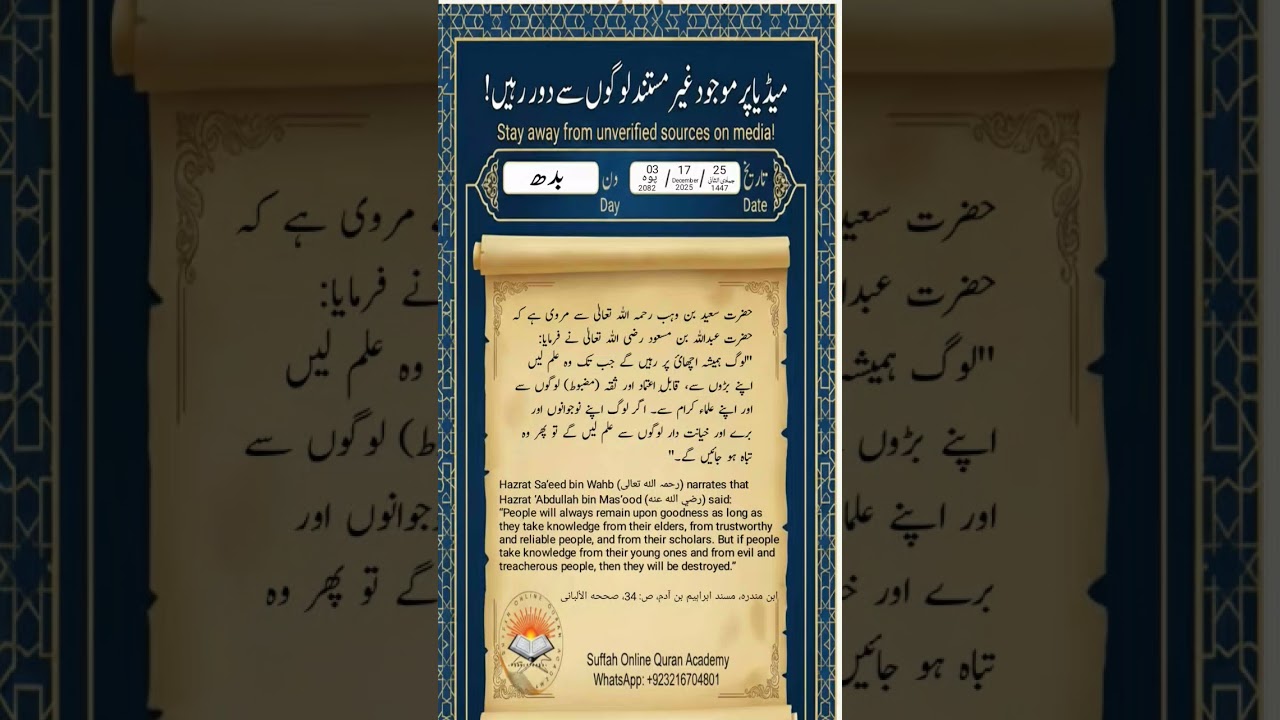 میڈیا پر موجود غیر مستند لوگوں سے دور رہیں!
Stay away from unverified sources on media!
تاریخ
Date
25 جمادی الثانی 1447 / 17 December 2025 / 03 پوہ 2082
دن
Day
بدھ
حضرت سعید بن وہب رحمہ اللہ تعالٰی سے مروی ہے کہ
حضرت عبداللہ بن مسعود رضی اللہ تعالٰی نے فرمایا:
"لوگ ہمیشہ اچھائ پر رہیں گے جب تک وہ علم لیں
اپنے بڑوں سے، قابلِ اعتماد اور ثقہ (مضبوط) لوگوں سے
اور اپنے علماء کرام سے۔ اگر لوگ اپنے نوجوانوں اور
برے اور خیانت دار لوگوں سے علم لیں گے تو پھر وہ
تباہ ہو جائیں گے۔"
Hazrat Sa’eed bin Wahb (رحمہ اللہ تعالی) narrates that
Hazrat ‘Abdullah bin Mas‘ood (رضي الله عنه) said:
“People will always remain upon goodness as long as
they take knowledge from their elders, from trustworthy
and reliable people, and from their scholars. But if people
take knowledge from their young ones and from evil and
treacherous people, then they will be destroyed.”
ابن مندرہ، مسند ابراہیم بن أدم، ص: 34، صححه الألبانی
Suffah Online Quran Academy
WhatsApp: +923216704801